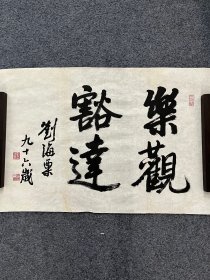 樂觀
豁達
劉海粟
九十六歲